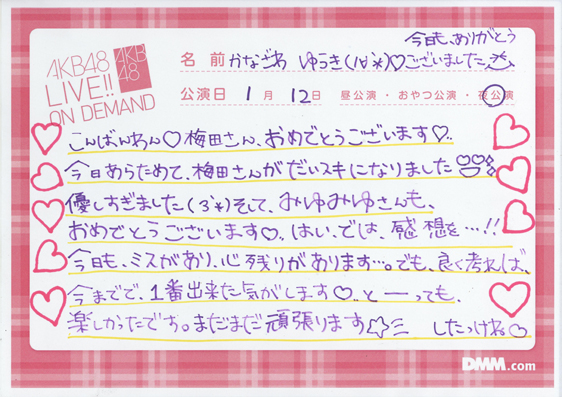 今日も、ありがとう
ございました
AKB48
LIVE!!
ON DEMAND
AKB
48
名前 かなざわ ゆうき
公演日 1月 12日 昼公演・おやつ公演・夜公演
こんばんわん♡梅田さん、おめでとうございます♡..
今日あらためて、梅田さんがだいスキになりました
優しすぎました(3*)そして、みゆみゆさんも、
おめでとうございます♡.. はい、では、感想を…!!
今日も、ミスがあり、心残りがあります…。でも、良く考れば、
今までで、1番出来た気がします♡.. と——っても、
楽しかったです。まだまだ頑張ります☆彡 したっけね♡
DMM.com